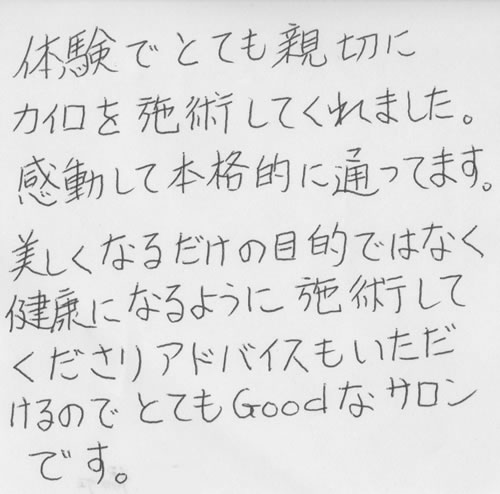 体験でとても親切に
カイロを施術してくれました。
感動して本格的に通ってます。
美しくなるだけの目的ではなく
健康になるように施術して
くださりアドバイスもいただ
けるのでとてもGoodなサロン
です。